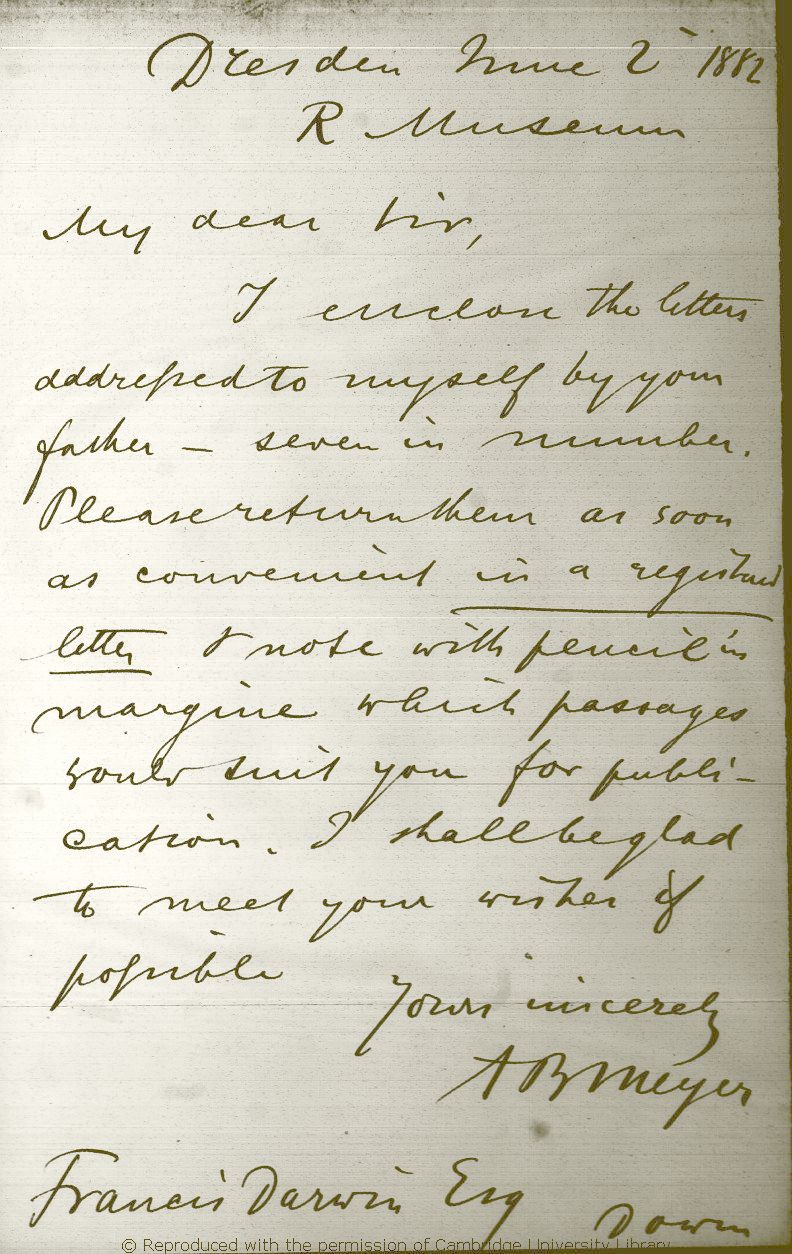 Dresden June 2 1882
R Museum
My dear Sir,
I enclose the letters
addressed to myself by your
father – seven in number.
Please return them as soon
as convenient in a registered
letter & note with pencil in
margine which passages
would suit you for publi-
cation. I shall be glad
to meet your wishes if
possible
Yours sincerely
A B Meyer
Francis Darwin Esq
Down
© Reproduced with the permission of Cambridge University Library